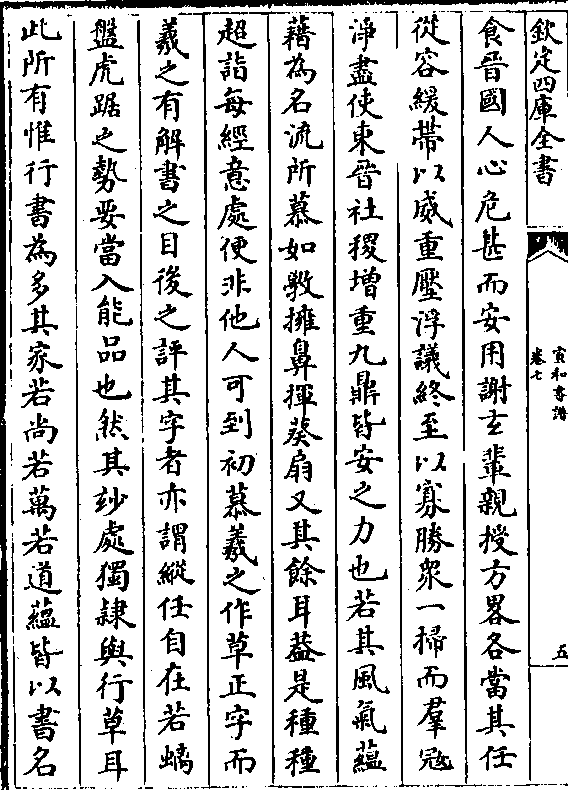 欽定四庫全書
宣和書譜
卷七
五
食晉國人心危甚而安用謝玄輩親授方畧各當其任
從容緩帶以威重壓浮議終至以寡勝衆一掃而羣冦
淨盡使東晉社稷增重九鼎皆安之力也若其風氣蘊
藉為名流所慕如斆擁鼻揮葵扇又其餘耳葢是種種
超詣每經意處便非他人可到初慕羲之作草正字而
羲之有解書之目後之評其字者亦謂縱任自在若螭
盤虎踞之勢要當入能品也然其妙處獨隷與行草耳
此所有惟行書為多其家若尚若萬若道藴皆以書名